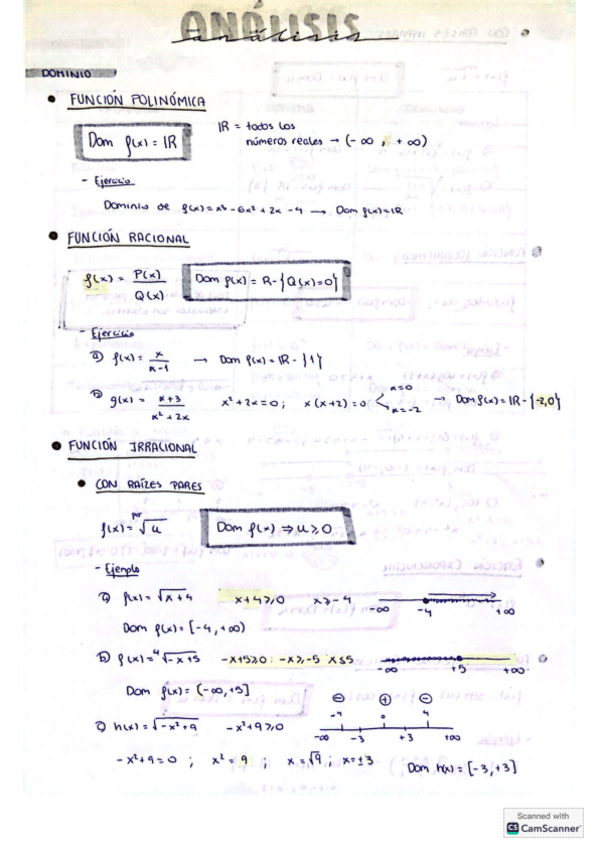 ANÁLISIS
análisis
DOMINIO
• FUNCIÓN POLINÓMICA
Dom f(x) = IR
IR = todos los
números reales → (-∞, +∞)
- Ejercicio
Dominio de f(x) = x³ - 6x² + 2x - 4 → Dom f(x) = IR
• FUNCIÓN RACIONAL
f(x) = P(x)/Q(x)
Dom f(x) = R - {Q(x)=0}
- Ejercicio
a) f(x) = x/(x-1) → Dom f(x) = IR - {1}
b) g(x) = (x+3)/(x²+2x) x²+2x=0; x(x+2)=0 < x=0 x=-2 → Dom f(x) = IR - {-2,0}
• FUNCIÓN IRRACIONAL
• CON RAÍZES PARES
f(x) = par√u
Dom f(x) ⇒ u ≥ 0
- Ejemplo
a) f(x) = √x+4 x+4 ≥ 0 x ≥ -4 -∞ -4 +∞
Dom f(x) = [-4, +∞)
b) f(x) = ⁴√-x+5 -x+5 ≥ 0 : -x ≥ -5 x ≤ 5 -∞ +5 +∞
Dom f(x) = (-∞, +5]
⊖ ⊕ ⊖
-4 0 4
c) h(x) = √-x²+9 -x²+9 ≥ 0 -∞ -3 +3 +∞
-x²+9 = 0 ; x² = 9 ; x = √9 ; x = ±3
Dom h(x) = [-3, +3]
Scanned with
CS CamScanner